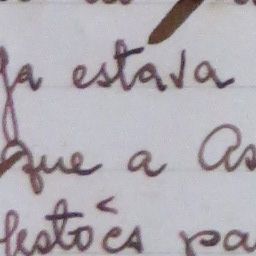 ja estava
que a As
festões pa